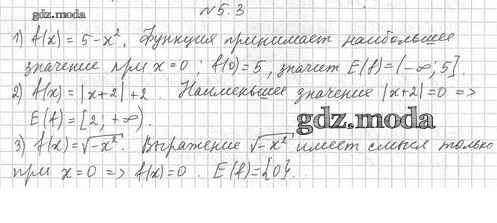 №5.3
gdz.moda
1) f(x) = 5 - x². Функция принимает наибольшее
значение при x = 0; f(0) = 5, значит E(f) = (-∞; 5].
2) f(x) = |x+2| + 2. Наименьшее значение |x+2| = 0 =>
E(f) = [2; +∞).
gdz.moda
3) f(x) = √-x². Выражение √-x² имеет смысл только
при x = 0 => f(x) = 0. E(f) = {0}.